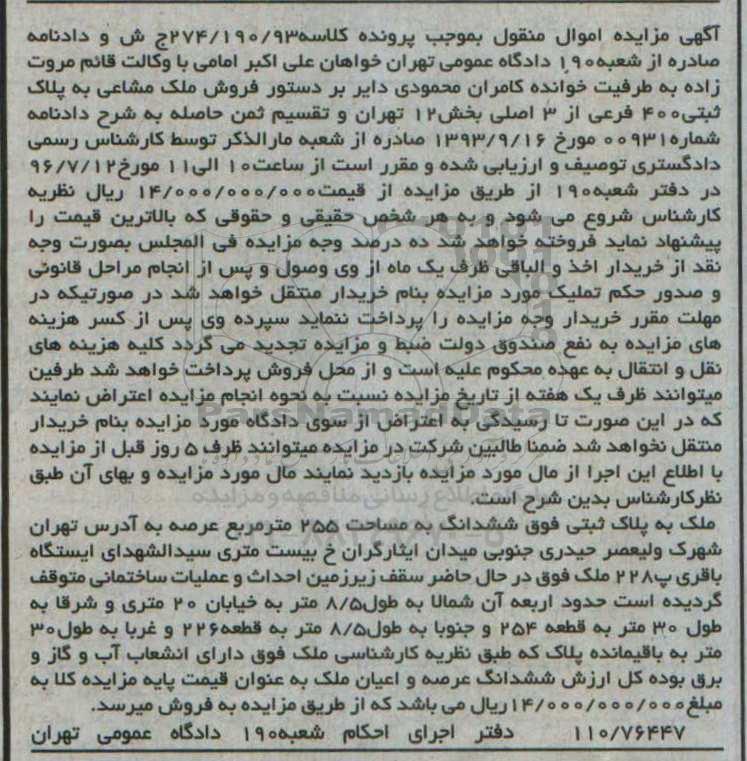 آگهی مزایده اموال منقول بموجب پرونده کلاسه۲۷۴/۱۹۰/۹۳ج ش و دادنامه
صادره از شعبه۱۹۰ دادگاه عمومی تهران خواهان علی اکبر امامی با وکالت قائم مروت
زاده به طرفیت خوانده کامران محمودی دایر بر دستور فروش ملک مشاعی به پلاک
ثبتی۴۰۰ فرعی از ۳ اصلی بخش۱۲ تهران و تقسیم ثمن حاصله به شرح دادنامه
شماره۰۰۹۳۱ مورخ ۱۳۹۳/۹/۱۶ صادره از شعبه مارالذکر توسط کارشناس رسمی
دادگستری توصیف و ارزیابی شده و مقرر است از ساعت۱۰ الی۱۱ مورخ۹۶/۷/۱۲
در دفتر شعبه۱۹۰ از طریق مزایده از قیمت۱۴/۰۰۰/۰۰۰/۰۰۰ ریال نظریه
کارشناس شروع می شود و به هر شخص حقیقی و حقوقی که بالاترین قیمت را
پیشنهاد نماید فروخته خواهد شد ده درصد وجه مزایده فی المجلس بصورت وجه
نقد از خریدار اخذ و الباقی ظرف یک ماه از وی وصول و پس از انجام مراحل قانونی
و صدور حکم تملیک مورد مزایده بنام خریدار منتقل خواهد شد در صورتیکه در
مهلت مقرر خریدار وجه مزایده را پرداخت ننماید سپرده وی پس از کسر هزینه
های مزایده به نفع صندوق دولت ضبط و مزایده تجدید می گردد کلیه هزینه های
نقل و انتقال به عهده محکوم علیه است و از محل فروش پرداخت خواهد شد طرفین
میتوانند ظرف یک هفته از تاریخ مزایده نسبت به نحوه انجام مزایده اعتراض نمایند
که در این صورت تا رسیدگی به اعتراض از سوی دادگاه مورد مزایده بنام خریدار
منتقل نخواهد شد ضمنا طالبین شرکت در مزایده میتوانند ظرف ۵ روز قبل از مزایده
با اطلاع این اجرا از مال مورد مزایده بازدید نمایند مال مورد مزایده و بهای آن طبق
نظرکارشناس بدین شرح است.
ملک به پلاک ثبتی فوق ششدانگ به مساحت ۲۵۵ مترمربع عرصه به آدرس تهران
شهرک ولیعصر حیدری جنوبی میدان ایثارگران خ بیست متری سیدالشهدای ایستگاه
باقری پ۲۲۸ ملک فوق در حال حاضر سقف زیرزمین احداث و عملیات ساختمانی متوقف
گردیده است حدود اربعه آن شمالا به طول۸/۵ متر به خیابان ۲۰ متری و شرقا به
طول ۳۰ متر به قطعه ۲۵۴ و جنوبا به طول۸/۵ متر به قطعه۲۲۶ و غربا به طول۳۰
متر به باقیمانده پلاک که طبق نظریه کارشناسی ملک فوق دارای انشعاب آب و گاز و
برق بوده کل ارزش ششدانگ عرصه و اعیان ملک به عنوان قیمت پایه مزایده کلا به
مبلغ۱۴/۰۰۰/۰۰۰/۰۰۰ریال می باشد که از طریق مزایده به فروش میرسد.
۱۱۰/۷۶۴۴۷ دفتر اجرای احکام شعبه۱۹۰ دادگاه عمومی تهران
ParsNamadData